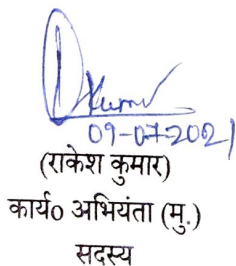 Kumar
09-07-2021
(राकेश कुमार)
कार्य० अभियंता (मु.)
सदस्य